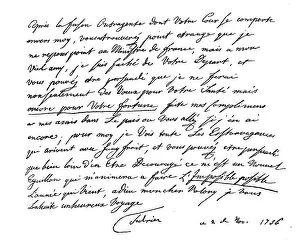 Après la façon Outrageante dont Votre Cour se comporte
envers moy, vous trouverés point etrange que je
ne repond point au Ministre de france, mais a mon
Vieil amy, je suis faché de Votre Depart, et
vous pouvés etre persuadé que je ne ferai
nonseulement des Voeux pour Votre Santé mais
encore pour Votre fortune, faite mes complimens
a mes amis dans Le païs ou Vous allé, si j'en ai
encore, pour moy je Vois toute Les Extravagances
qui arivent au sang froit, et vous pouvés etre persuadé
que bien loin d'en Etre Decouragé ce n'est un Nouvel
Eguillon qui m'animera a faire L'Impossible possible
L'année qui Vient, adieu mon cher Valory je Vous
Souhaite un heureux Voyage
Federic a 2 de Nov. 1756